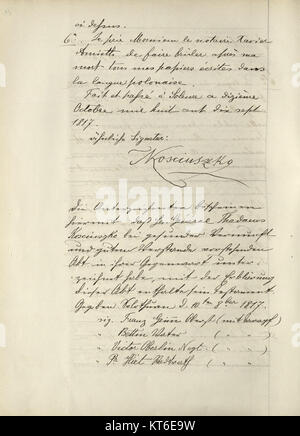 ci dessus.
6° Je prie Monsieur le notaire Xavier
Amiette de faire brûler après ma
mort tous mes papiers écrites dans
la langue polonaise.
Fait et passé à Soleure ce dixième
Octobre mil huit cent dix sept
1817.
T Kosciuszko
Die Unterzeichneten bescheinen
hiermit daß Hr General Thadaeus
Kosciuszko bei gesunder Vernunft
und guten Verstande vorstehenden
Akt in ihrer Gegenwart unter-
zeichnet habe, mit der Erklärung
dieser Akt enthalte sein Testament.
Gegeben Solothurn d. 10ten 8ber 1817.
sig. Franz Grim Oberst
" "
" Victor Oberlin Negt. " "
" "
alamy
KT6E9W